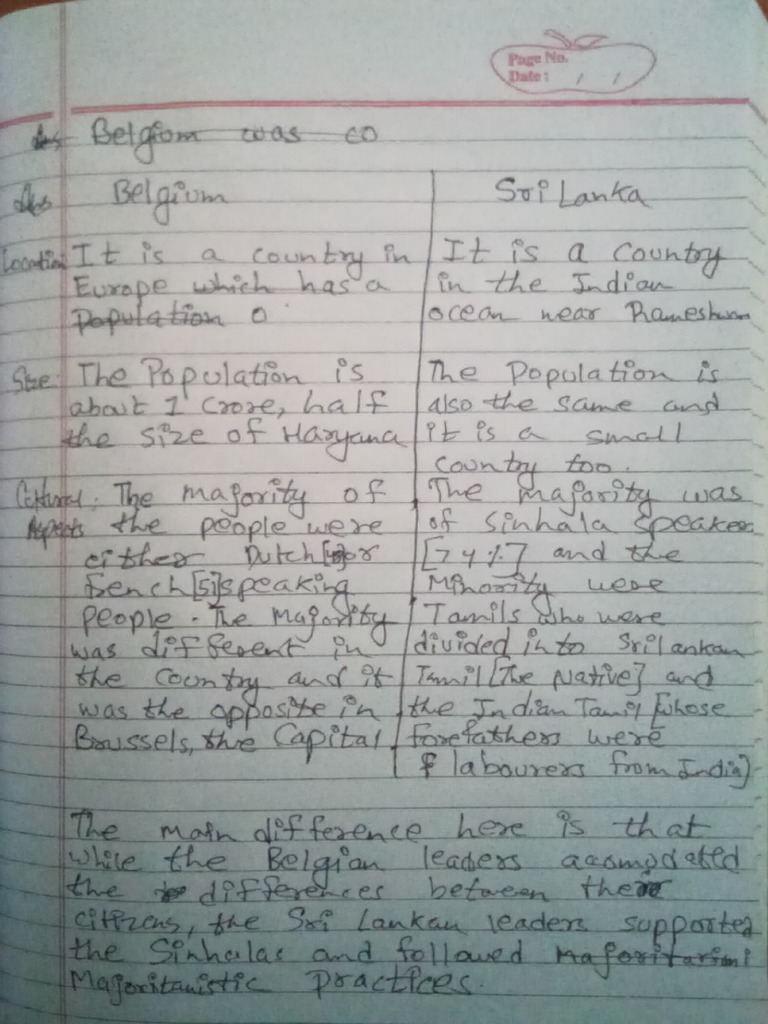 Page No.
Date: / /
Ans Belgium was co
Ans Belgium Sri Lanka
Location It is a country in It is a country
Europe which has a in the Indian
Population o ocean near Rameshwam
Size: The Population is The Population is
about 1 crore, half also the same and
the size of Haryana it is a small
country too.
Cultural: The majority of The majority was
Aspects the people were of Sinhala speakers
either Dutch or [74%] and the
french [S] speaking Minority were
people. The Majority Tamils who were
was different in divided into Srilankan
the country and it Tamil [The Native] and
was the opposite in the Indian Tamil [whose
Brussels, the Capital forefathers were
labourers from India]
The main difference here is that
while the Belgian leaders acomodated
the differences between there
citizens, the Sri Lankan leaders supported
the Sinhalas and followed Majoritarini
Majoritanistic practices.